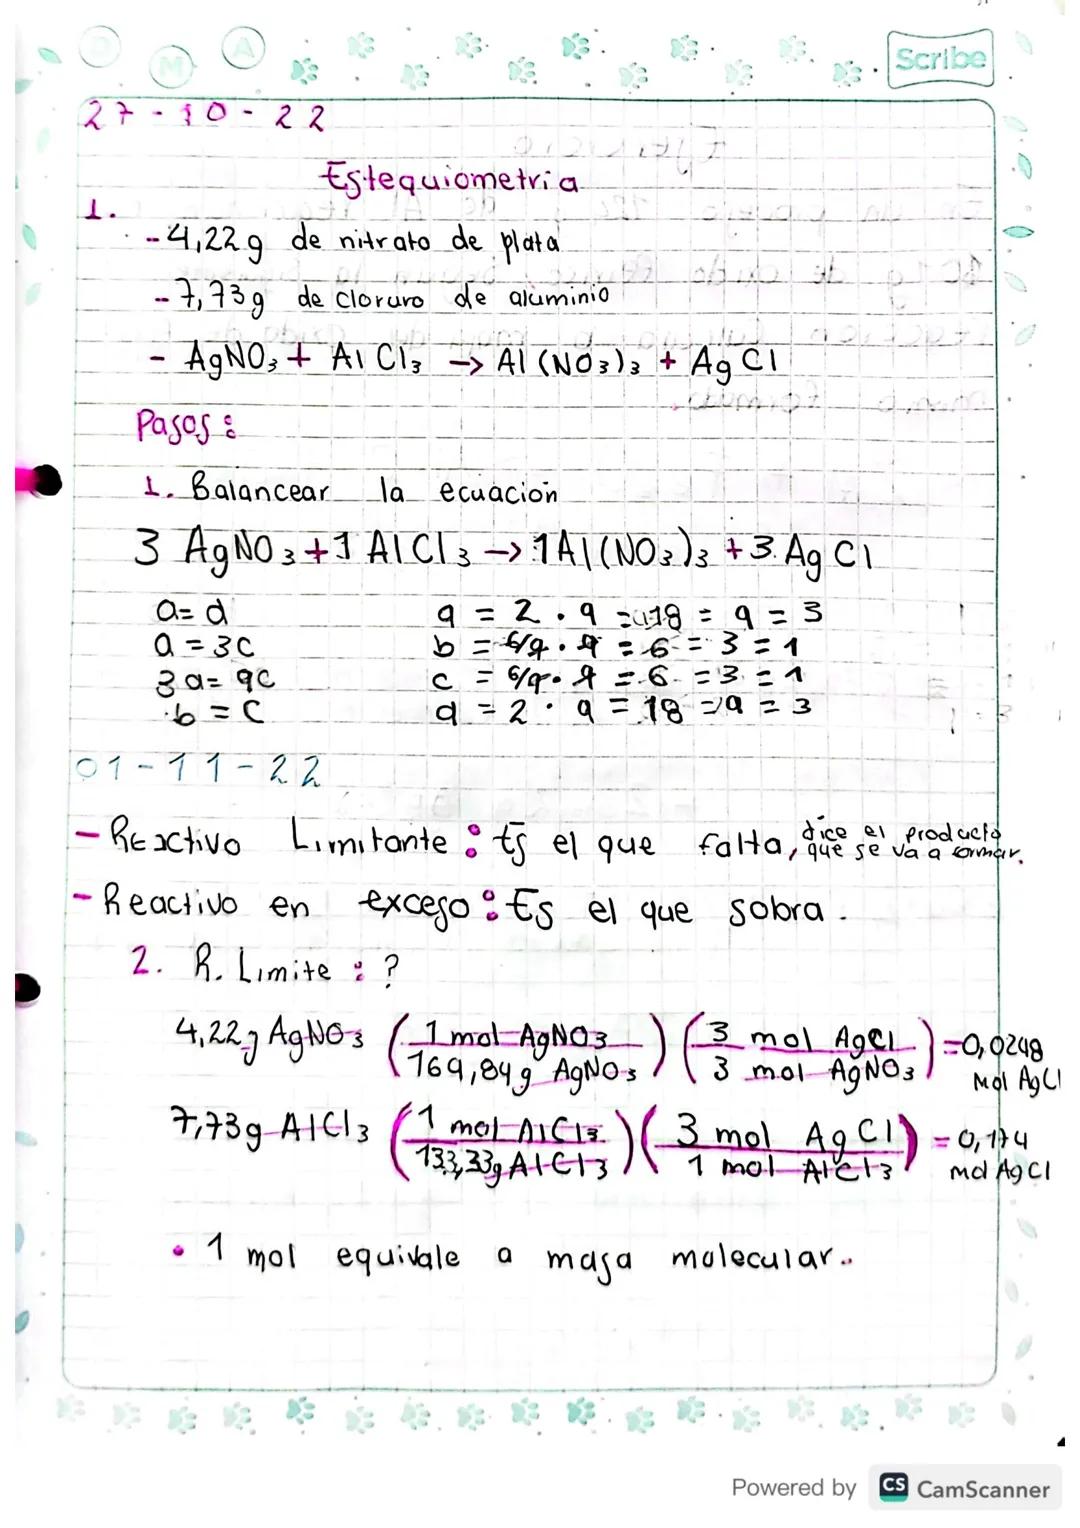 D M A
Scribe
27-10-22
Estequiometria
1.
-4,22g de nitrato de plata
-7,73g de cloruro de aluminio
- AgNO3 + AlCl3 → Al(NO3)3 + AgCl
Pasos:
1. Balancear la ecuación
3 AgNO3 + 1 AlCl3 → 1Al(NO3)3 + 3 AgCl
a = d
a = 3c
3a = 9c
b = c
a = 2 · 9 = 18 = 9 = 3
b = 6/9 · 9 = 6 = 3 = 1
c = 6/9 · 9 = 6 = 3 = 1
d = 2 · 9 = 18 = 9 = 3
01-11-22
- Reactivo Limitante: Es el que falta, dice el producto que se va a formar.
- Reactivo en exceso: Es el que sobra.
2. R. Limite: ?
4,22g AgNO3 (1 mol AgNO3 / 169,84g AgNO3) (3 mol AgCl / 3 mol AgNO3) = 0,0248 Mol AgCl
7,73g AlCl3 (1 mol AlCl3 / 133,33g AlCl3) (3 mol AgCl / 1 mol AlCl3) = 0,174 mol AgCl
• 1 mol equivale a masa molecular..
Powered by CS CamScanner